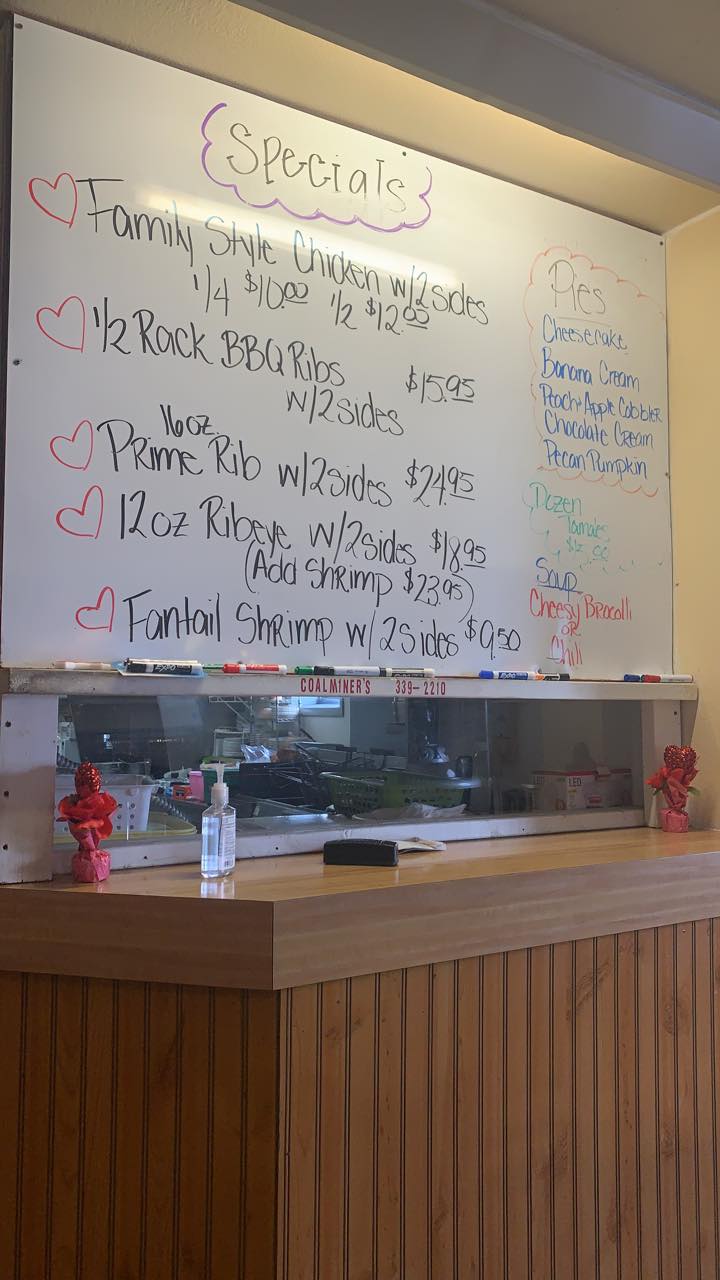 Specials
Family Style Chicken w/2 sides
1/4 $10.00 1/2 $12.00
1/2 Rack BBQ Ribs $15.95
w/2 sides
16oz.
Prime Rib w/2 sides $24.95
12oz Ribeye w/2 sides $18.95
(Add Shrimp $23.95)
Fantail Shrimp w/2 Sides $9.50
Pies
Cheesecake
Banana Cream
Peach+Apple Cobbler
Chocolate Cream
Pecan Pumpkin
Dozen
Tamales
Soup
Cheesy Brocolli
OR
Chili
COALMINER'S 339-2210
LED
LED